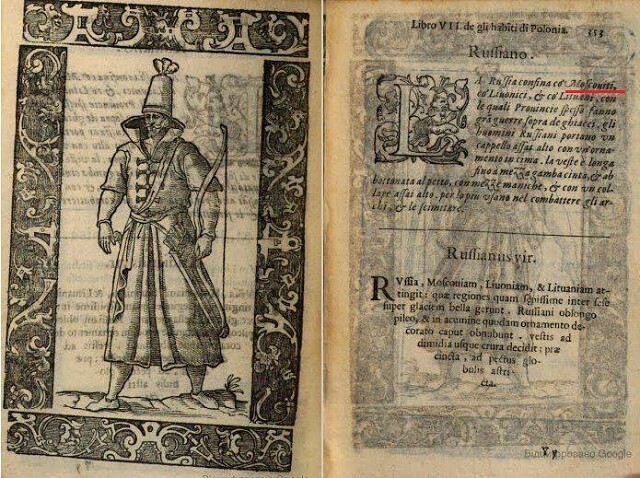 Libro VII. de gli habiti di Polonia. 353
Russiano.
LA Russia confina co' Moscouiti,
co' Liuonici, & co' Lituani, con
le quali Prouincie spesso fanno
grā guerre sopra de ghiacci, gli
huomini Russiani portano vn
cappello assai alto con vn'orna-
mento in cima. la veste è longa
fino a mezza gamba cinta, & ab
bottonata al petto, con mezze maniche, & con vn col-
lare assai alto. per lo piu vsano nel combattere gli ar-
chi, & le scimitare.
Russianus vir.
RVssia, Moscouiam, Liuoniam, & Lituaniam at-
tingit: quæ regiones quam sæpissime inter sese
super glaciem bella gerunt. Russiani oblongo
pileo, & in acumine quodam ornamento de-
corato caput obnubunt. vestis ad
dimidia usque crura decidit: præ
cincta, ad pectus glo-
bulis astri-
cta.
Yy
Google